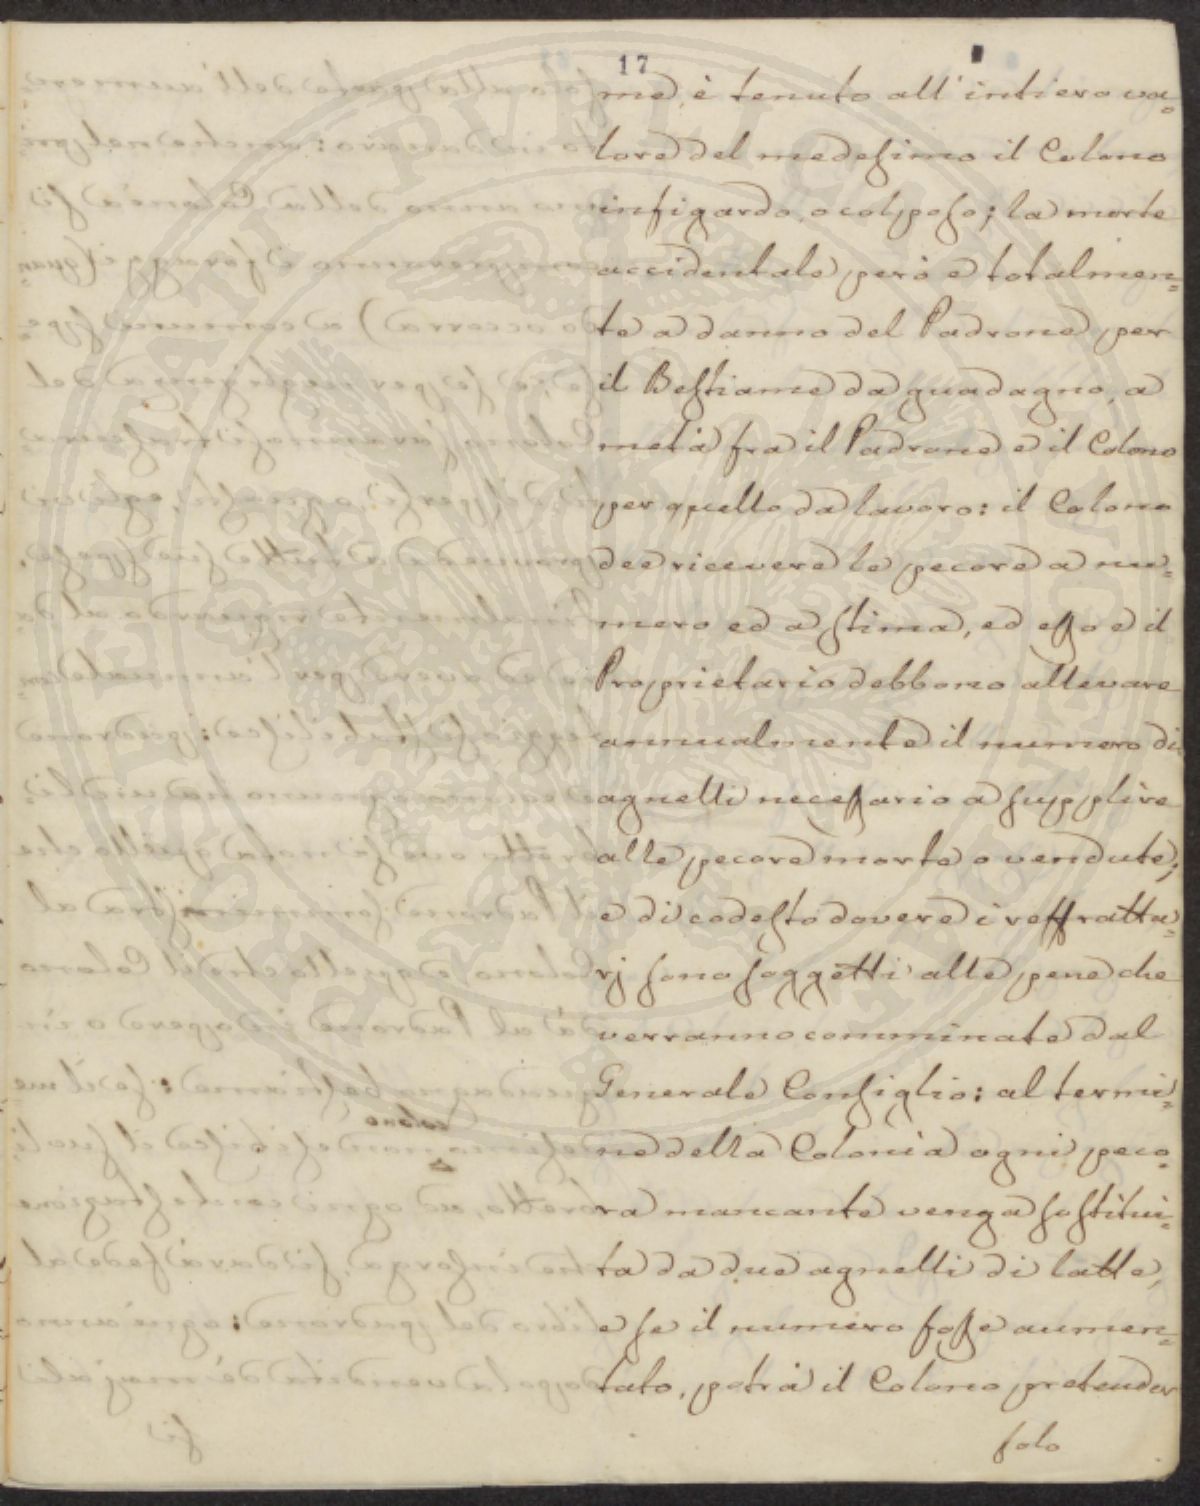 17
me, è tenuto all'intiero va=
lore del medesimo il Colono
infigardo, o colposo; la morte
accidentale però è totalmen=
te a danno del Padrone per
il Bestiame da guadagno, a
metà fra il Padrone e il Colono
per quello da lavoro: il Colono
dee ricevere le pecore a nu=
mero ed a stima, ed esso e il
Proprietario debbono allevare
annualmente il numero di
agnelli necessario a supplire
alle pecore morte o vendute;
e di codesto dovere i reffratta=
rj sono soggetti alle pene che
verranno comminate dal
Generale Consiglio: al termi=
ne della Colonia ogni peco=
ra mancante venga sostitui=
ta da due agnelli di latte,
e se il numero fosse aumen=
tato, potrà il Colono pretender
solo